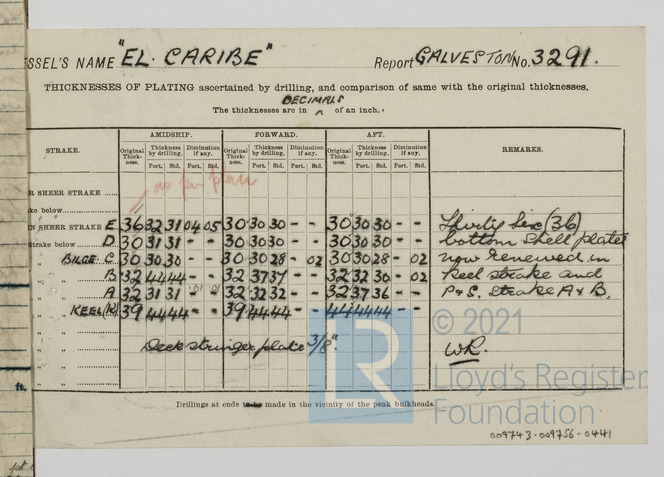 SSEL'S NAME "EL CARIBE" Report GALVESTON No. 3291.
THICKNESSES OF PLATING ascertained by drilling, and comparison of same with the original thicknesses.
DECIMALS
The thicknesses are in ^ of an inch.
STRAKE. AMIDSHIP. FORWARD. AFT. REMARKS.
Original Thickness. Thickness by drilling. Diminution if any. Original Thickness. Thickness by drilling. Diminution if any. Original Thickness. Thickness by drilling. Diminution if any.
Port. Std. Port. Std. Port. Std. Port. Std. Port. Std. Port. Std.
R SHEER STRAKE ......
no per plan
ke below
IN SHEER STRAKE E 36 32 31 04 05 30 30 30 - - 30 30 30 - - Thirty Six (36)
Strake below D 30 31 31 - - 30 30 30 - - 30 30 30 - - bottom shell plates
" BILGE C 30 30 30 - - 30 30 28 - 02 30 30 28 - 02 now renewed in
" " B 32 44 44 - - 32 37 37 - - 32 32 30 - 02 keel strake and
" " A 32 31 31 - - 01 01 32 32 32 - - 32 37 36 - - P & S. Strake A & B.
" KEEL (K) 39 44 44 - - 39 44 44 - - 44 44 44 - -
" " Deck stringer plate 3/8" WR.
ft.
Drillings at ends to be made in the vicinity of the peak bulkheads.
LR
© 2021
Lloyd's Register
Foundation
009743-009756-0441